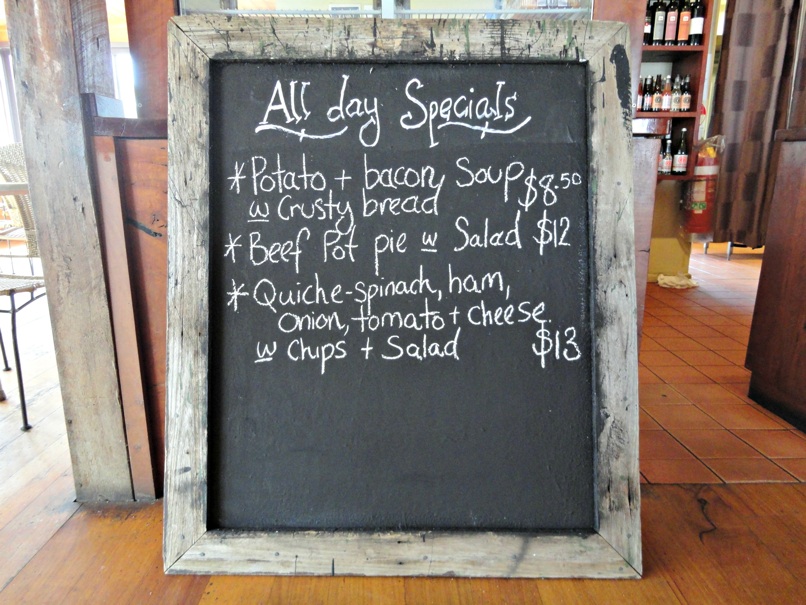 All day Specials
* Potato + bacon Soup $8.50
w Crusty bread
* Beef Pot pie w Salad $12
* Quiche-spinach, ham,
onion, tomato + cheese.
w chips + Salad $13